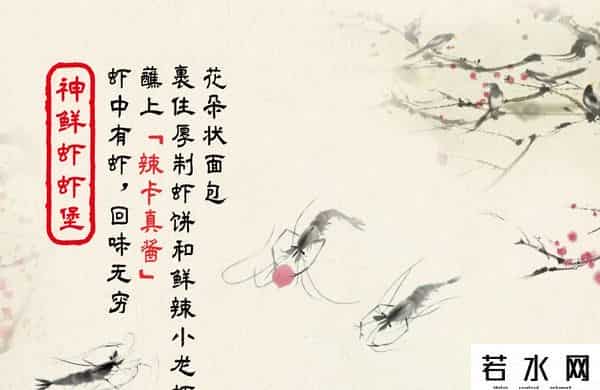 花朵状面包
裹住厚制虾饼和鲜辣小龙
蘸上「辣卡真醬」
虾中有虾，回味无穷
神鲜虾虾堡
若水网